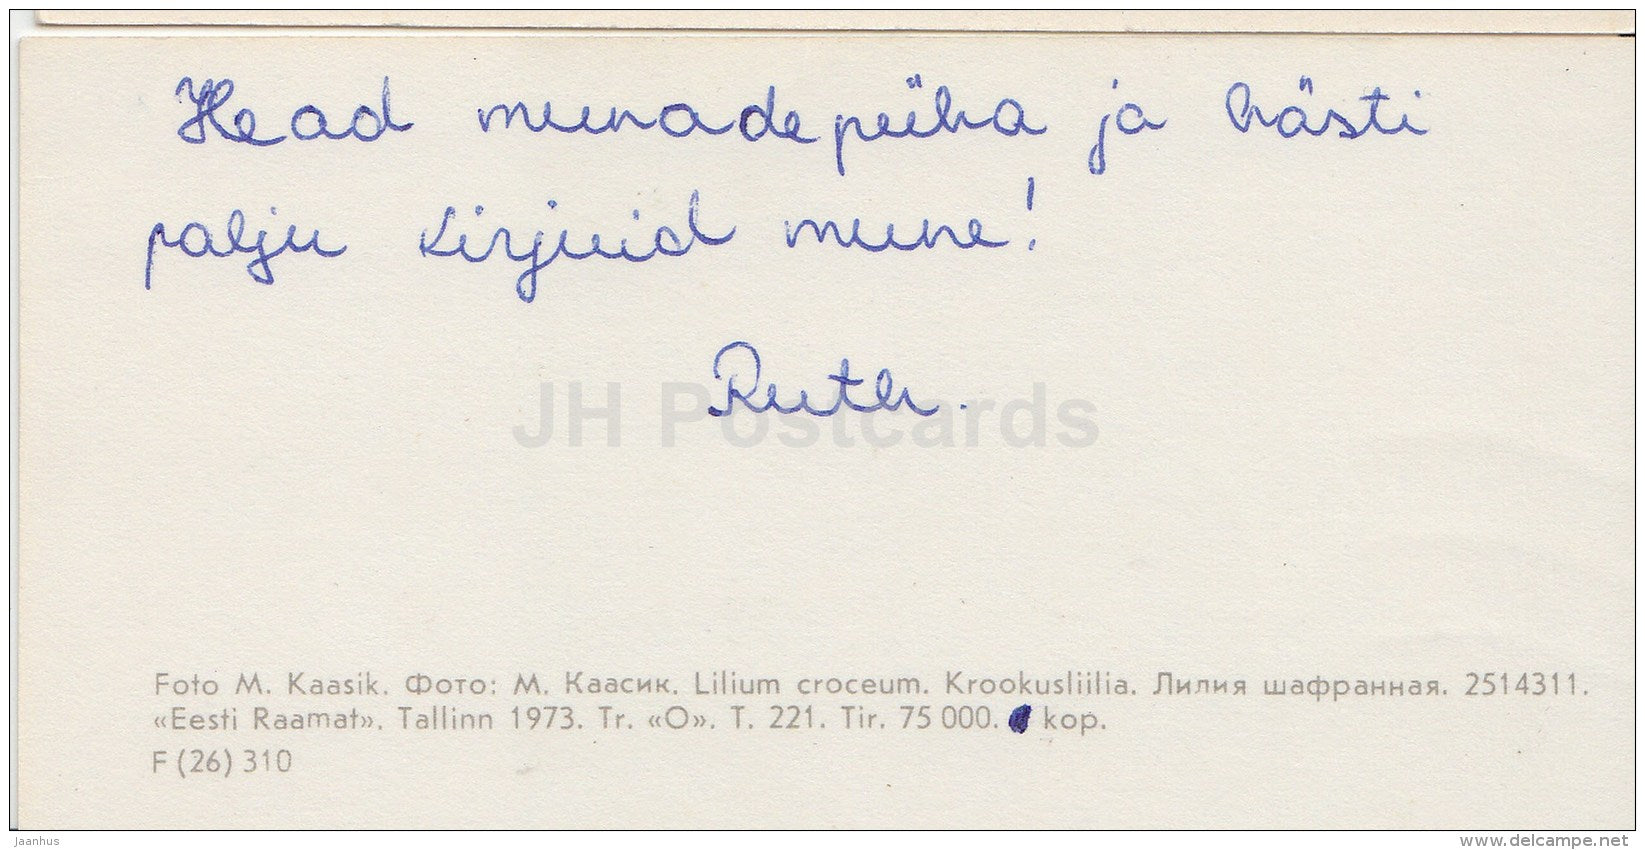 Head munadepüha ja hästi
palju kirjuid mune!
Ruth.
JH Postcards
Foto M. Kaasik. Фото: М. Каасик. Lilium croceum. Krookusliilia. Лилия шафранная. 2514311.
«Eesti Raamat». Tallinn 1973. Tr. «O». T. 221. Tir. 75 000. kop.
F (26) 310
jaanhus
delcampe.net